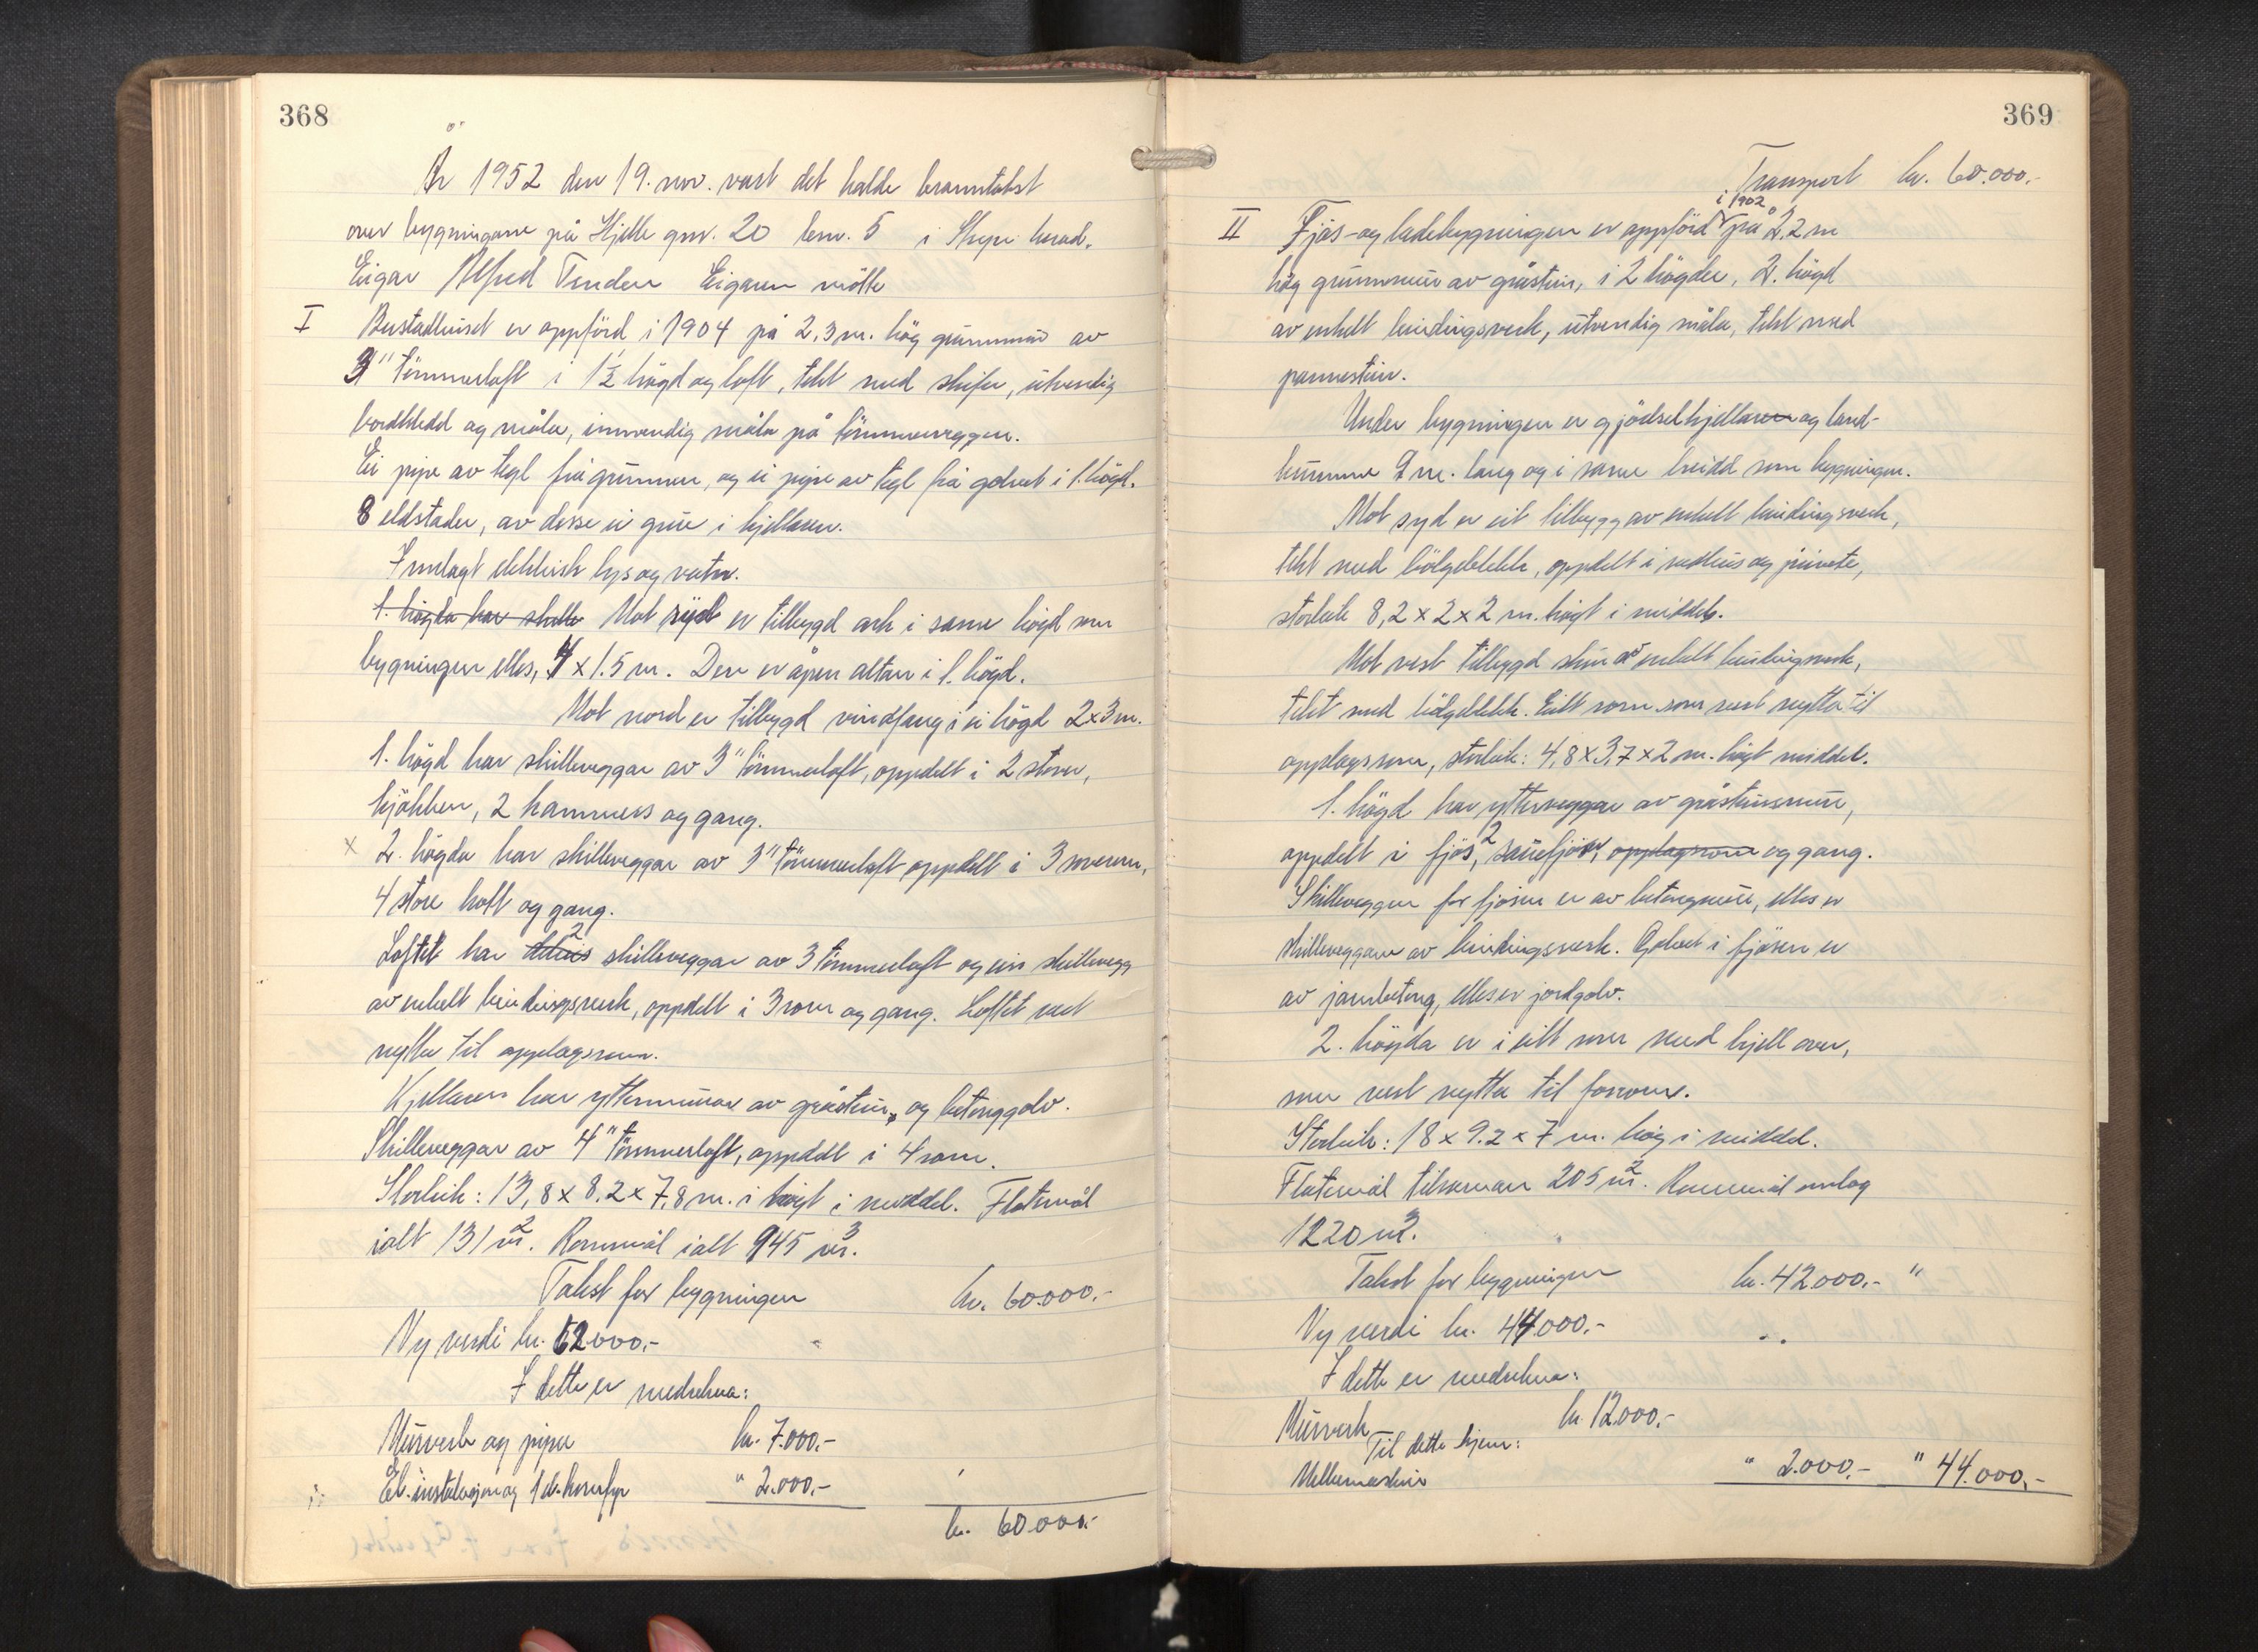 368
År 1952 den 19. nov. vart det halde branntakst
over bygningane på Hjelle gnr. 20 bnr. 5 i Stryn herad.
Eigar Alfred Tenden Eigaren møtte
I Bustadhuset er oppförd i 1904 på 2,3 m. hög grunnmur av
3" tömmerlaft i 1½ högd og loft, tekt med skifer, utvendig
bordkledd og måla, innvendig måla på tömmerveggen.
Ei pipe av tegl frå grunnen, og ei pipe av tegl frå golvet i 1. högd.
8 eldstader, av desse ei grue i kjellaren.
Innlagt elektrisk lys og vatn.
1. högda har skille Mot syd er tilbygd ark i same högd som
bygningen elles, 4 x 1.5 m. Den er åpen altan i 1. högd.
Mot nord er tilbygd vindfang i ei högd 2x3 m.
1. högd har skilleveggar av 3" tömmerlaft, oppdelt i 2 stover,
kjökken, 2 kammers og gang.
x 2. högda har skilleveggar av 3" tömmerlaft oppdelt i 3 soverom,
4 store kott og gang.
2
Loftet har skilleveggar av 3 tömmerlaft og ein skillevegg
av enkelt bindingsverk, oppdelt i 3 rom og gang. Loftet vert
nytta til opplagsrom.
Kjellaren har yttermurar av gråstein, og betonggolv.
Skilleveggar av 4" tömmerlaft, oppdelt i 4 rom.
Storleik: 13,8 x 8,2 x 7,8 m. i högt i middel. Flatemål
ialt 131 m². Rommål ialt 945 m³.
Takst for bygningen kr. 60.000.-
Ny verdi kr. 62000,-
I dette er medrekna:
Murverk og piper kr. 7.000.-
El. installasjon og 1 el. komfyr " 2.000,-
kr. 60.000.-
369
Transport kr. 60.000.-
i 1902
II Fjös- og ladebygningen er oppförd på 2,2 m
hög grunnmur av gråstein, i 2 högder, 2. högd
av enkelt bindingsverk, utvendig måla, tekt med
pannestein.
Under bygningen er gjödselkjellaren og land-
kumme 9 m. lang og i same breidd som bygningen.
Mot syd er eit tilbygg av enkelt bindingsverk,
tekt med bölgeblekk, oppdelt i vedhus og privete,
storleik 8,2 x 2 x 2 m. högt i middel.
Mot vest tilbygd skur av enkelt bindingsverk,
tekt med bölgeblekk. Eitt rom som vert nytta til
opplagsrom, storleik: 4,8 x 3,7 x 2 m. högt middel.
1. högd har ytterveggar av gråsteinsmur,
oppdelt i fjös, 2 sauefjös, opplagsrom og gang.
Skilleveggen for fjösen er av betongmur, elles er
skilleveggane av bindingsverk. Golvet i fjösen er
av jarnbetong, elles er jordgolv.
2. högda er i eitt rom med hjell over,
som vert nytta til forrom.
Storleik: 18 x 9.2 x 7 m. hög i middel.
Flatemål tilsaman 205 m². Rommål omlag
1220 m³.
Takst for bygningen kr. 42.000.- "
Ny verdi kr. 44.000.-
I dette er medrekna:
Murverk kr. 12.000.-
Til dette kjem:
Melkemaskin " 2.000.- " 44.000,-